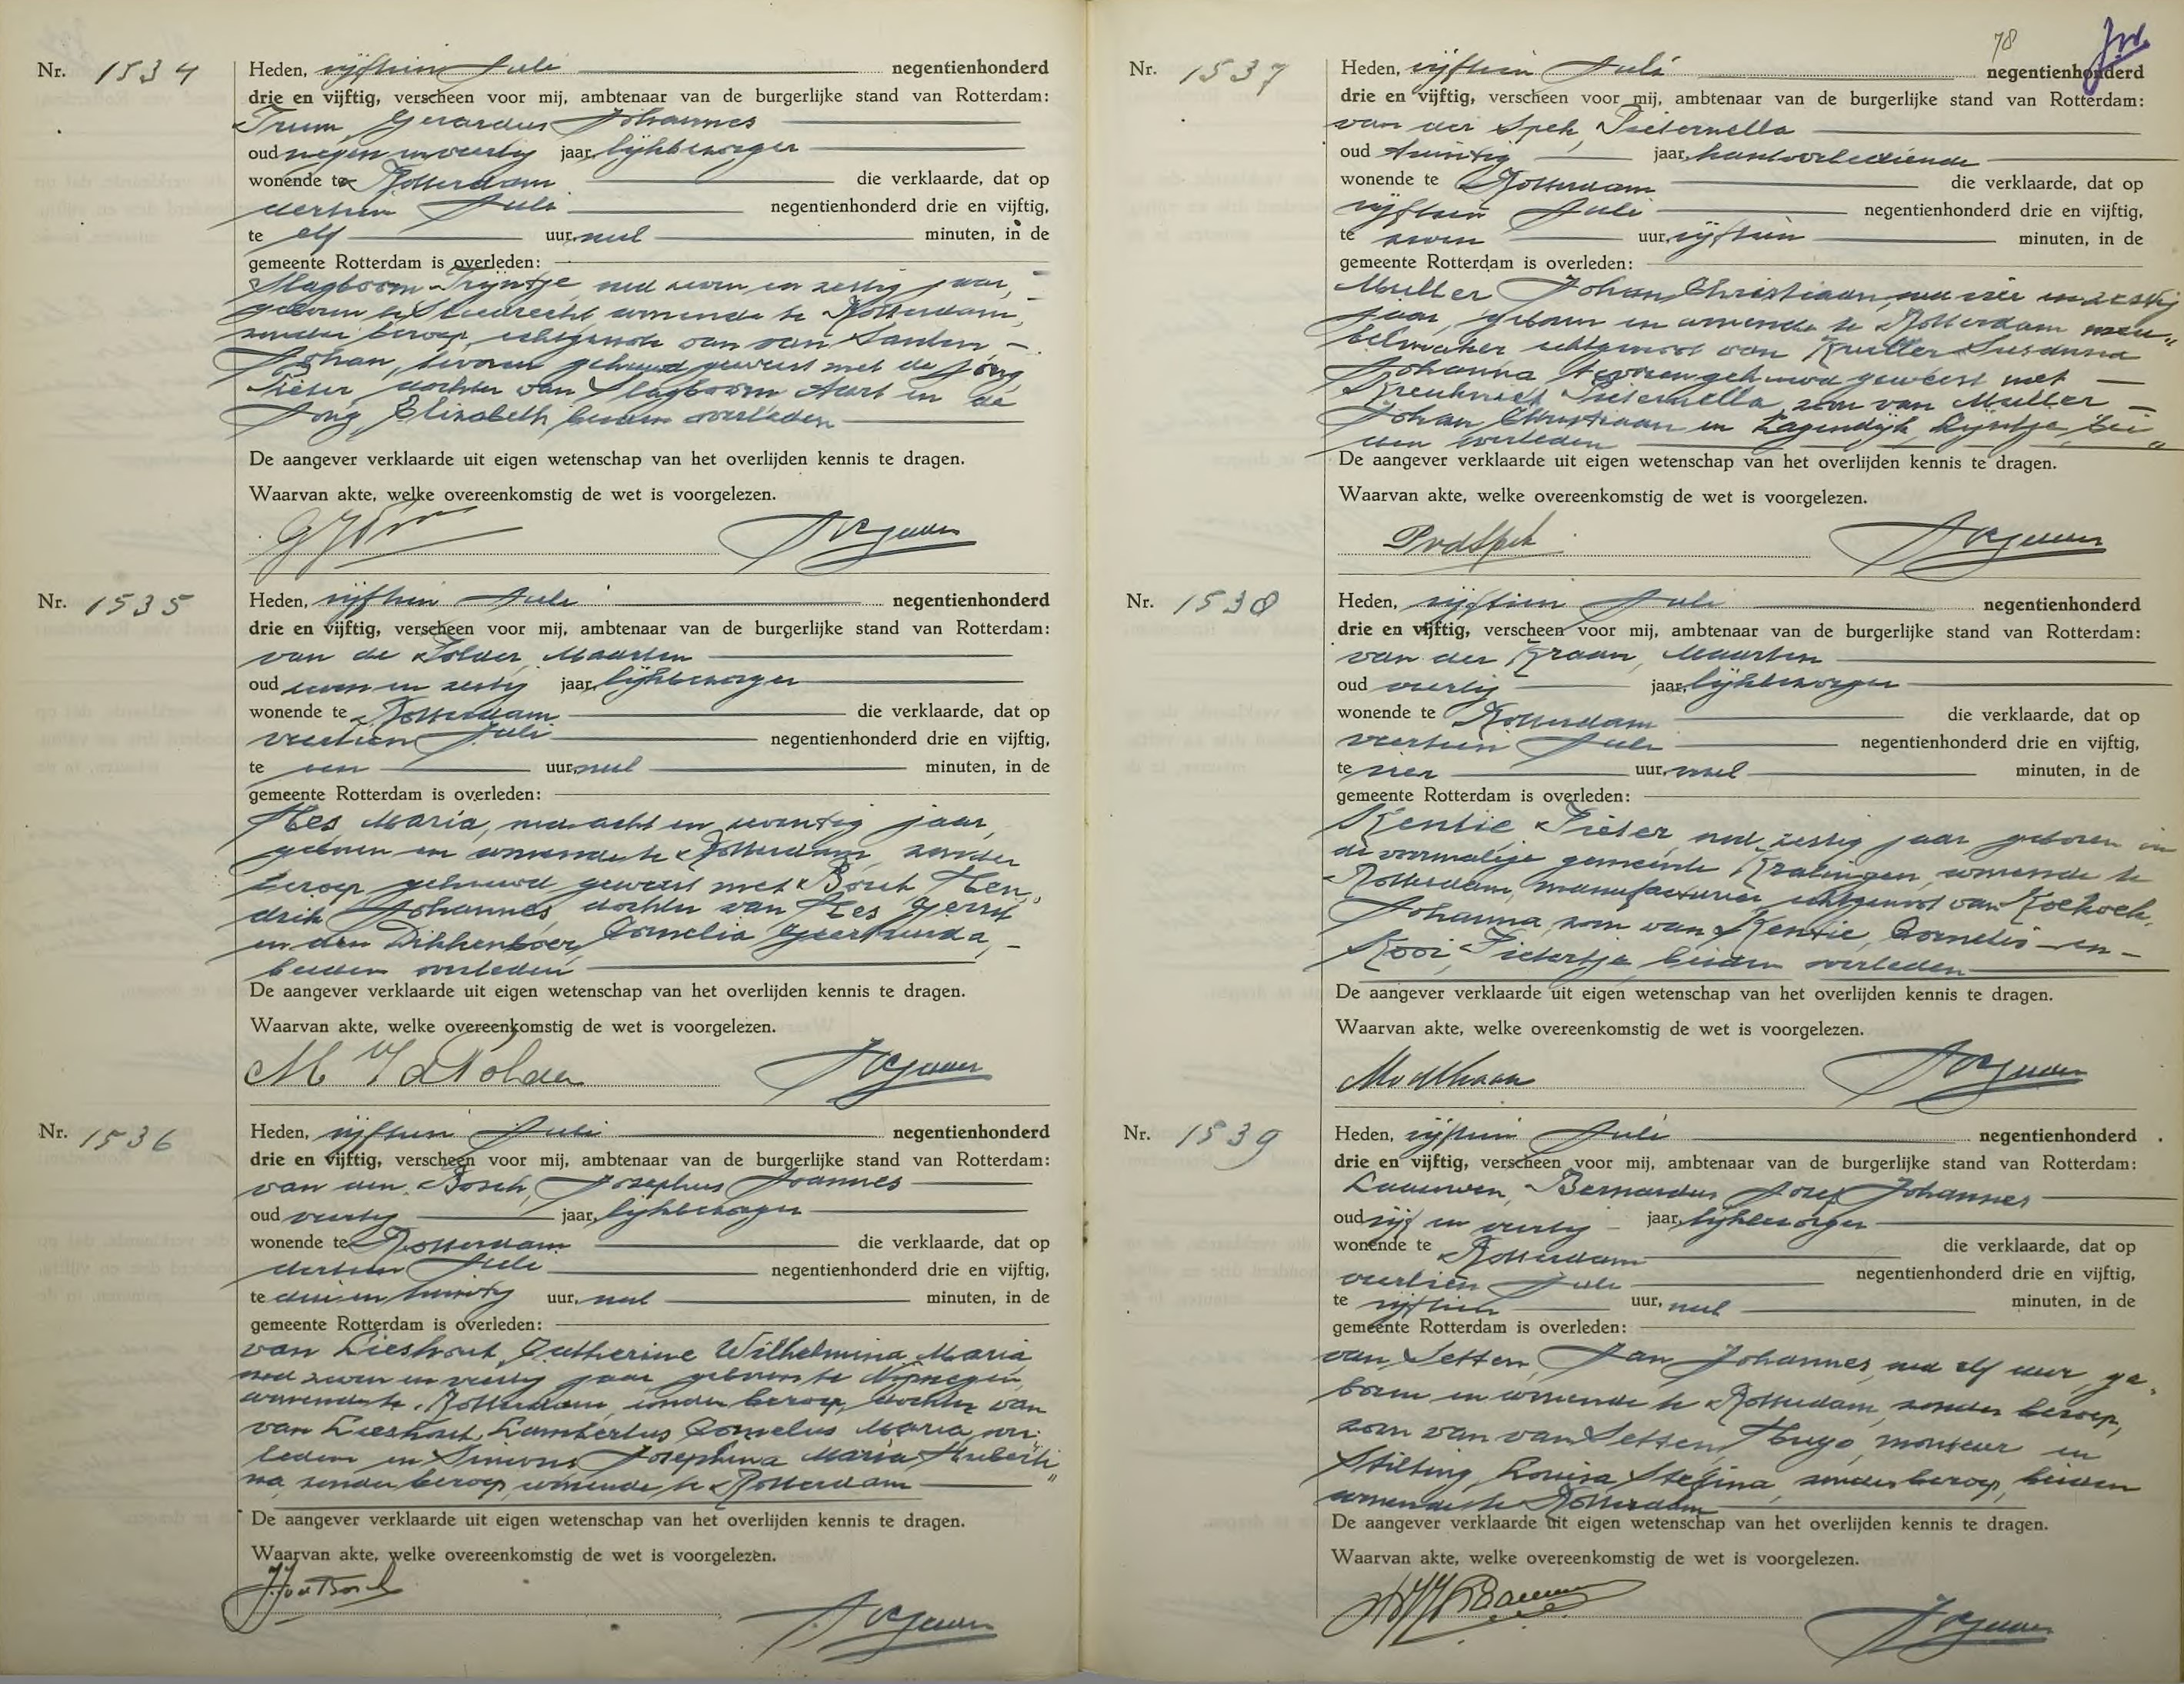 Nr. 1534
Heden, vijftien Juli negentienhonderd
drie en vijftig, verscheen voor mij, ambtenaar van de burgerlijke stand van Rotterdam:
Gerardus Johannes
oud negen en veertig jaar, lijkbezorger
wonende te Rotterdam die verklaarde, dat op
dertien Juli negentienhonderd drie en vijftig,
te elf uur, nul minuten, in de
gemeente Rotterdam is overleden:
Slagboom Trijntje, oud zeven en zestig jaar,
geboren te Sliedrecht, wonende te Rotterdam,
zonder beroep, echtgenote van van Santen
Johan, tevoren gehuwd geweest met de Jong
Pieter, dochter van Slagboom Aart en de
Jong, Elizabeth, beiden overleden
De aangever verklaarde uit eigen wetenschap van het overlijden kennis te dragen.
Waarvan akte, welke overeenkomstig de wet is voorgelezen.
Nr. 1535
Heden, vijftien Juli negentienhonderd
drie en vijftig, verscheen voor mij, ambtenaar van de burgerlijke stand van Rotterdam:
van de Polder, Maarten
oud zeven en zestig jaar, lijkbezorger
wonende te Rotterdam die verklaarde, dat op
veertien Juli negentienhonderd drie en vijftig,
te een uur, nul minuten, in de
gemeente Rotterdam is overleden:
Hes, Maria, oud acht en zeventig jaar,
geboren en wonende te Rotterdam, zonder
beroep, gehuwd geweest met Bosch Hen„
drik Johannes, dochter van Hes, Gerrit
en den Dikkenboer, Cornelia Geertruida,
beiden overleden
De aangever verklaarde uit eigen wetenschap van het overlijden kennis te dragen.
Waarvan akte, welke overeenkomstig de wet is voorgelezen.
M vd Polder
Nr. 1536
Heden, vijftien Juli negentienhonderd
drie en vijftig, verscheen voor mij, ambtenaar van de burgerlijke stand van Rotterdam:
van den Bosch, Josephus Joannes
oud veertig jaar, lijkbezorger
wonende te Rotterdam die verklaarde, dat op
dertien Juli negentienhonderd drie en vijftig,
te drie en twintig uur, nul minuten, in de
gemeente Rotterdam is overleden:
van Lieshout, Catherine Wilhelmina Maria
oud zeven en veertig jaar, geboren te Nijmegen,
wonende te Rotterdam, zonder beroep, dochter van
van Lieshout, Lambertus Cornelus Maria, over
leden en Simons Josephina Maria Huberti„
na, zonder beroep, wonende te Rotterdam
De aangever verklaarde uit eigen wetenschap van het overlijden kennis te dragen.
Waarvan akte, welke overeenkomstig de wet is voorgelezen.
JJ vd Bosch
78
Nr. 1537
Heden, vijftien Juli negentienhonderd
drie en vijftig, verscheen voor mij, ambtenaar van de burgerlijke stand van Rotterdam:
van der Spek, Pieternella
oud twintig jaar, kantoorbediende
wonende te Rotterdam die verklaarde, dat op
vijftien Juli negentienhonderd drie en vijftig,
te zeven uur, vijftien minuten, in de
gemeente Rotterdam is overleden:
Muller Johan Christiaan, oud vier en zestig
jaar, geboren en wonende te Rotterdam, meu„
belmaker echtgenoot van Susanna
Johanna tevoren gehuwd geweest met
Pieternella, zoon van Muller
Johan Christiaan en Lagendijk, Lijntje, bei„
den overleden
De aangever verklaarde uit eigen wetenschap van het overlijden kennis te dragen.
Waarvan akte, welke overeenkomstig de wet is voorgelezen.
PvdSpek
Nr. 1538
Heden, vijftien Juli negentienhonderd
drie en vijftig, verscheen voor mij, ambtenaar van de burgerlijke stand van Rotterdam:
van der Kraan, Maarten
oud veertig jaar, lijkbezorger
wonende te Rotterdam die verklaarde, dat op
veertien Juli negentienhonderd drie en vijftig,
te vier uur, nul minuten, in de
gemeente Rotterdam is overleden:
Kentie Pieter, oud zestig jaar geboren in
de voormalige gemeente Kralingen, wonende te
Rotterdam, manufacturier, echtgenoot van Koekoek,
Johanna, zoon van Kentie, Cornelis en
Kooi, Pietertje, beiden overleden
De aangever verklaarde uit eigen wetenschap van het overlijden kennis te dragen.
Waarvan akte, welke overeenkomstig de wet is voorgelezen.
MvdKraan
Nr. 1539
Heden, vijftien Juli negentienhonderd
drie en vijftig, verscheen voor mij, ambtenaar van de burgerlijke stand van Rotterdam:
Bernardus Jozef Johannes
oud vijf en veertig jaar, lijkbezorger
wonende te Rotterdam die verklaarde, dat op
veertien Juli negentienhonderd drie en vijftig,
te vijftien uur, nul minuten, in de
gemeente Rotterdam is overleden:
van Setten, Jan Johannes, oud elf uur, ge„
boren en wonende te Rotterdam, zonder beroep,
zoon van van Setten, Hugo, monteur en
Stilting, Louisa Stefina, zonder beroep, beiden
wonende te Rotterdam
De aangever verklaarde uit eigen wetenschap van het overlijden kennis te dragen.
Waarvan akte, welke overeenkomstig de wet is voorgelezen.